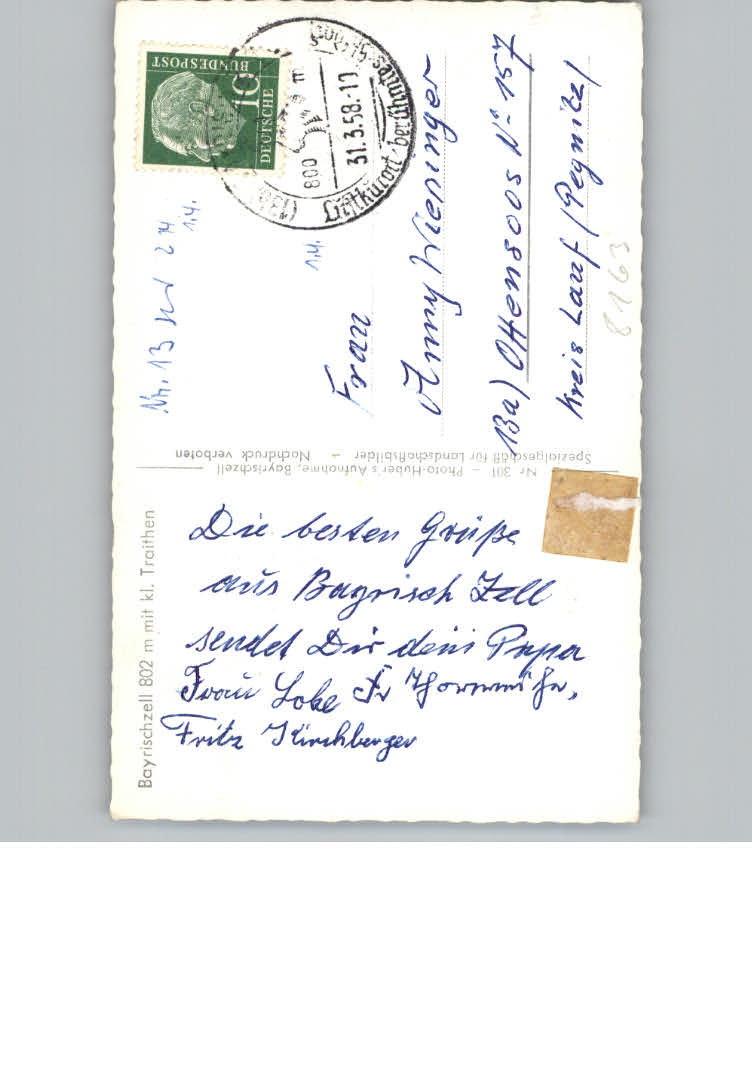 Bayrischzell 802 m mit kl. Traithen
Die besten Grüße
aus Bayrisch Zell
sendet Dir dein Papa
Frau Lobe Fr
Fritz Kirchberger
Nr 301 – Photo-Huber's Aufnahme, Bayrischzell
Spezialgeschäft für Landschaftsbilder – Nachdruck verboten
DEUTSCHE
BUNDESPOST
10
31.3.58-10
800 m
(13b)
Luftkurort
Nr. 13
1.4.
1.4.
Frau
Anny Wieninger
13a) Ottensoos No 157
Kreis Lauf/Pegnitz/
8163